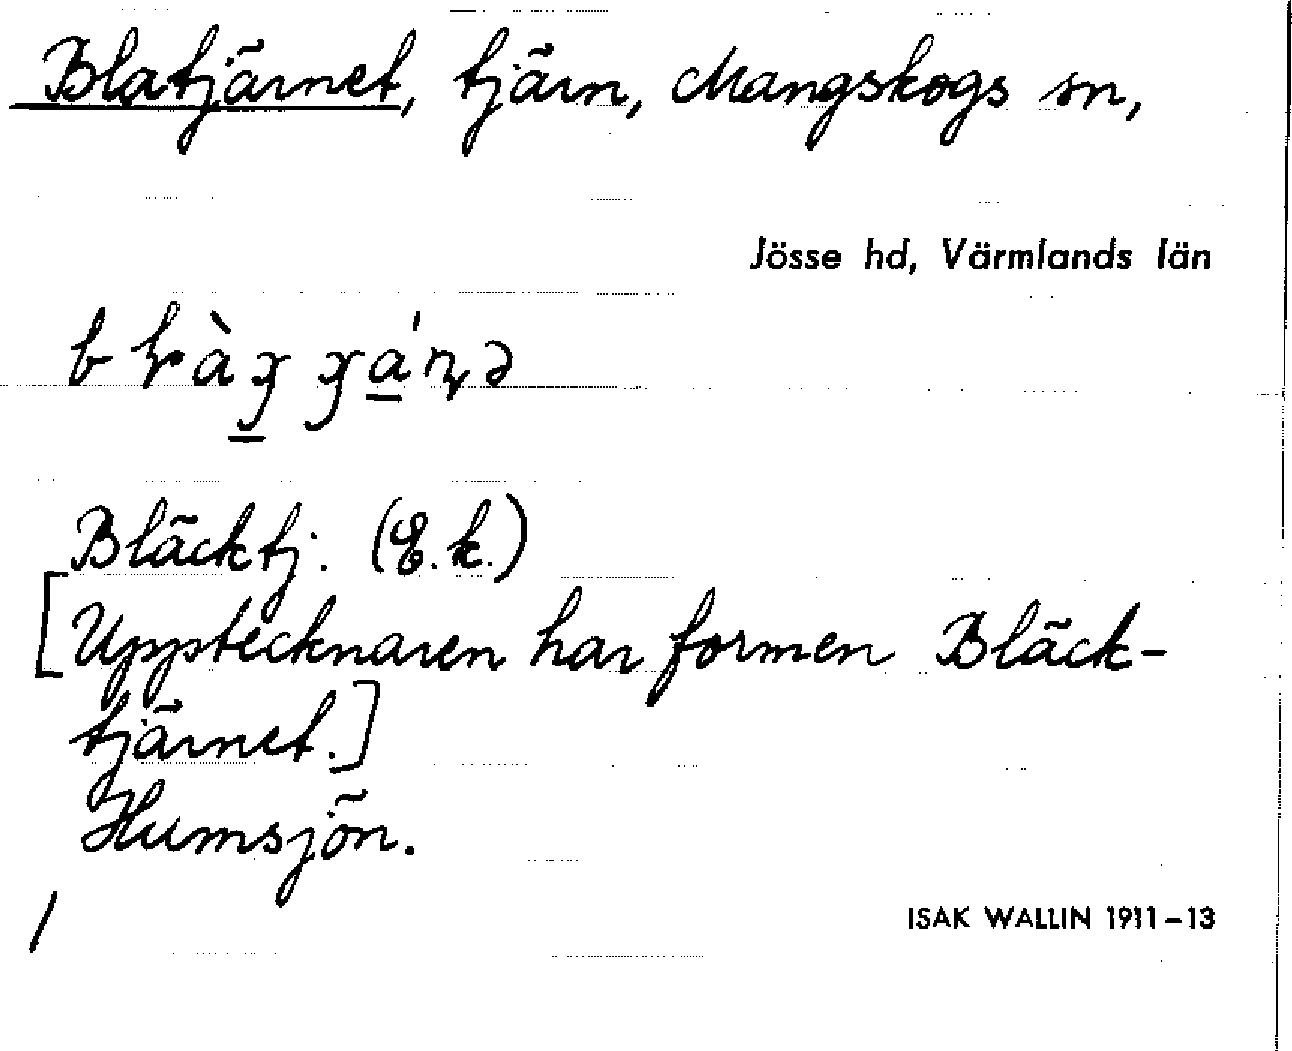 Blatjärnet, tjärn, Mangskogs sn,
Jösse hd, Värmlands län
Bläcktj. (E.k.)
[Upptecknaren har formen Bläck-
tjärnet.]
Humsjön.
/
ISAK WALLIN 1911–13